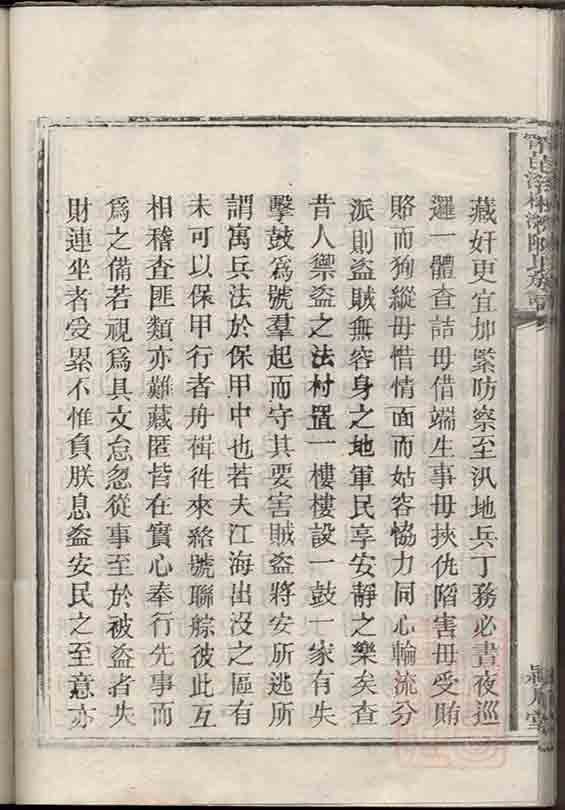 藏奸更宜加緊防察至汛地兵丁務必晝夜巡
邏一體查詰毋借端生事毋挾仇陷害毋受賄
賂而狥縱毋惜情面而姑容恊力同心輪流分
派則盜賊無容身之地軍民享安靜之樂矣查
昔人禦盜之法村置一樓樓設一鼓一家有失
擊鼓爲號羣起而守其要害賊盜將安所逃所
謂寓兵法於保甲中也若夫江海出沒之區有
未可以保甲行者舟楫徃來絡號聯䑸彼此互
相稽查匪類亦難藏匿皆在實心奉行先事而
爲之備若視爲具文怠忽從事至於被盜者失
財連坐者受累不惟負朕息盜安民之至意亦
潁川堂